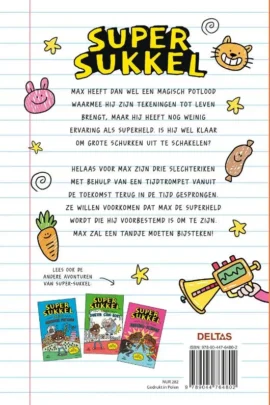 SUPER
SUKKEL
MAX HEEFT DAN WEL EEN MAGISCH POTLOOD
WAARMEE HIJ ZIJN TEKENINGEN TOT LEVEN
BRENGT, MAAR HIJ HEEFT NOG WEINIG
ERVARING ALS SUPERHELD. IS HIJ WEL KLAAR
OM GROTE SCHURKEN UIT TE SCHAKELEN?
HELAAS VOOR MAX ZIJN DRIE SLECHTERIKEN
MET BEHULP VAN EEN TIJDTROMPET VANUIT
DE TOEKOMST TERUG IN DE TIJD GESPRONGEN.
ZE WILLEN VOORKOMEN DAT MAX DE SUPERHELD
WORDT DIE HIJ VOORBESTEMD IS OM TE ZIJN.
MAX ZAL EEN TANDJE MOETEN BIJSTEKEN!
LEES OOK DE
ANDERE AVONTUREN
VAN SUPER-SUKKEL
SUPER
SUKKEL
SUPER
SUKKEL
SUPER
SUKKEL
DELTAS
NUR 282
Gedrukt in Polen
ISBN: 978-90-447-6480-2
9 789044 764802